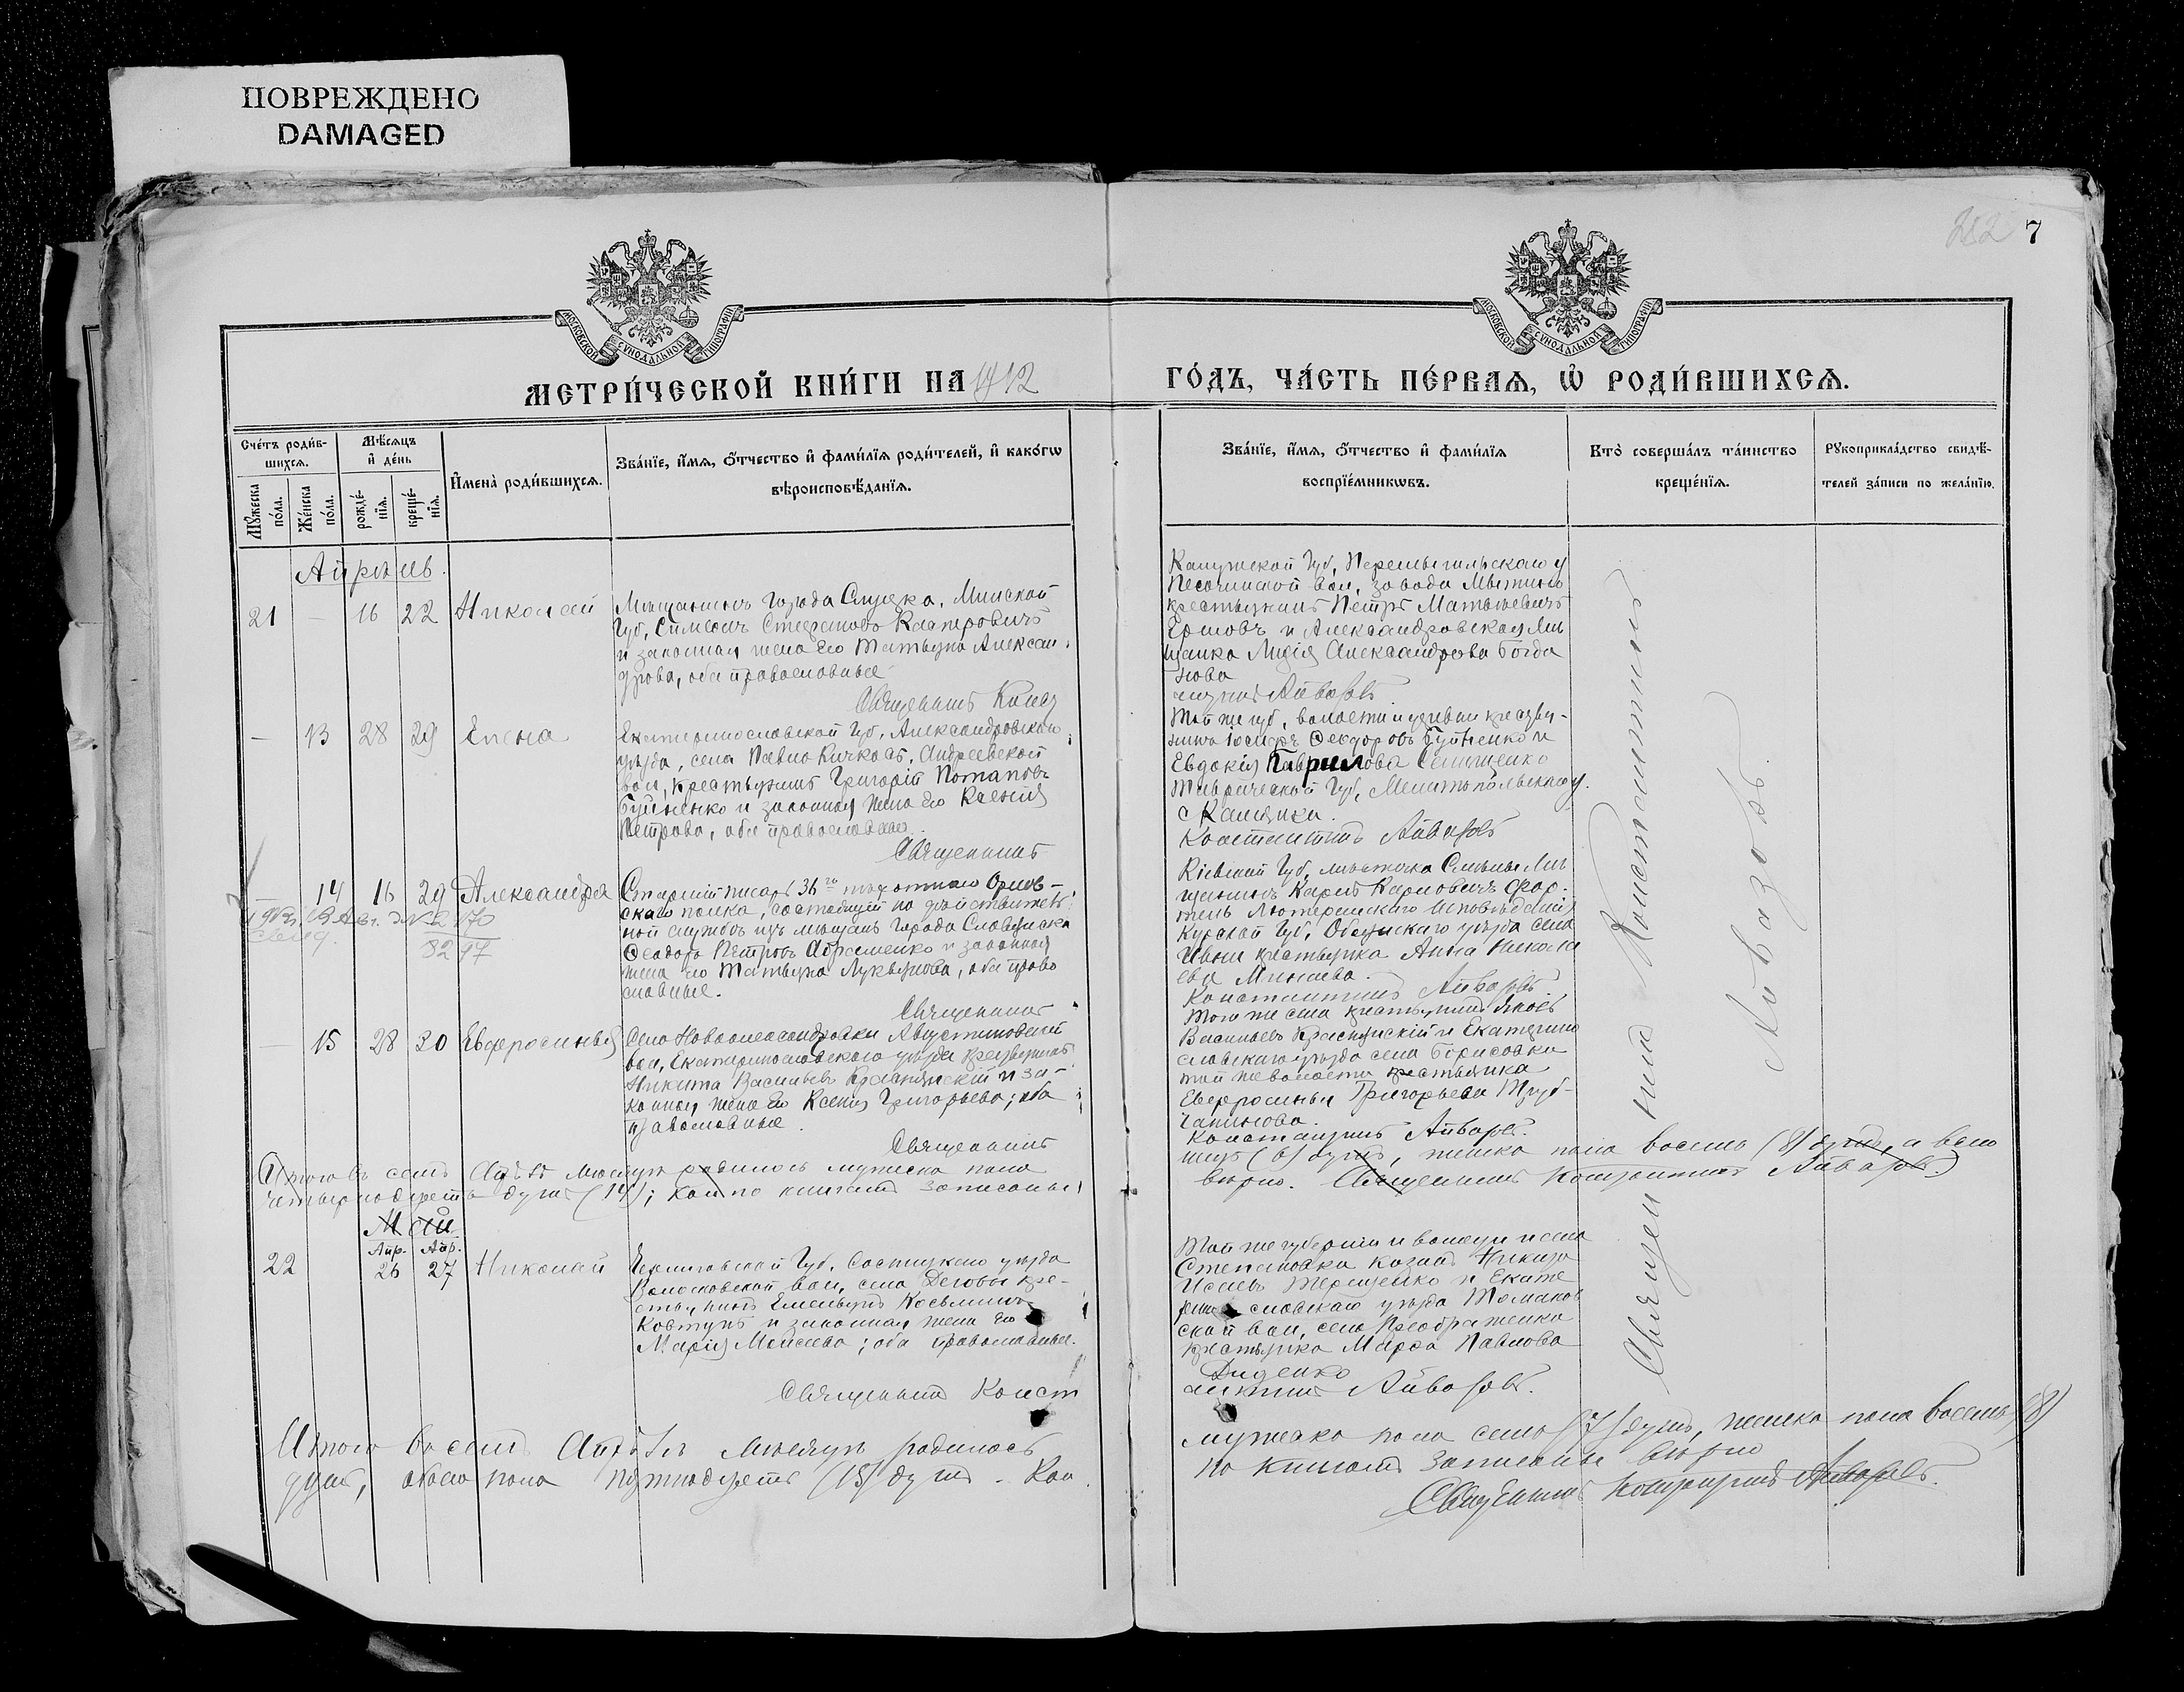 ПОВРЕЖДЕНО
DAMAGED
7
МОСКОВСКОЙ СУНОДАЛЬНОЙ ТИПОГРАФІИ
МОСКОВСКОЙ СУНОДАЛЬНОЙ ТИПОГРАФІИ
МЕТРИ́ЧЕСКОЙ КНИ́ГИ НА 1912
ГО́ДЪ, ЧА́СТЬ ПЕ́РВАѦ, Ѽ РОДИ́ВШИХСѦ.
Сче́тъ роди́в-
шихсѧ.
Мꙋ́жеска по́ла.
Же́нска по́ла.
Мѣ́сѧцъ
и҆ де́нь
рожде́-нїѧ.
креще́-нїѧ.
И҆мена̀ роди́вшихсѧ.
Зва́нїе, и҆́мѧ, ѻ҆́тчество и҆ фами́лїѧ роди́телей, и҆ како́гѡ
вѣроисповѣ́данїѧ.
Зва́нїе, и҆́мѧ, ѻ҆́тчество и҆ фами́лїѧ
воспрїе́мникѡвъ.
Кто̀ соверша́лъ та́инство
креще́нїѧ.
Рꙋкоприкла́дство свидѣ́-
телей за́писи по жела́нїю.
Апрѣль.
21 — 16 22 Николай
Мѣщанинъ города Слуцка, Минской
Губ, Симеонъ Стефановъ
и законная жена его Татьяна Алексан-
дрова, оба православные
Священникъ Конст
Калужской Губ, Перемышльскаго у
вол, завода
крестьянинъ Петръ Матвѣевичъ
Ершовъ и Александровская Мѣ
щанка Лидія Александрова Богда
нова
Айвазовъ
— 13 28 29 Елена
Екатеринославской Губ, Александровскаго
уѣзда, села Павло Кичкасъ, Андреевской
вол, крестьянинъ Григорій Потаповъ
и законная жена его Ксенія
Петрова, оба православные
Священникъ
Той же губ, волости и деревни крестья-
нинъ Іосифъ Феодоровъ и
Евдокія Гаврилова
Таврической Губ, Мелитопольскаго у.
с
Константинъ Айвазовъ
— 14 16 29 Александра
170
8297
Старшій писарь 36го пѣхотнаго Орлов-
скаго полка, состоящій на дѣйствитель
ной службѣ изъ мѣщанъ города Славянска
Феодоръ Петровъ Абраменко и законная
жена его Татьяна Лукьянова, оба право
славные.
Священникъ
Кіевской Губ, мѣстечка Смѣлы Мѣ
щанинъ Карлъ Карловичъ
Лютеранскаго исповѣданія
Курской Губ, Обоянскаго уѣзда села
Ивни крестьянка Анна Никола
ева Минаева.
Константинъ Айвазовъ.
— 15 28 30 Евфросинья
Села Новоалександровки Августиновской
вол, Екатеринославскаго уѣзда крестьянинъ
Никита Васильевъ и за-
конная жена его Ксенія Григорьева; оба
православные.
Священникъ
Того же села крестьянинъ Яковъ
Васильевъ и Екатерино
славскаго уѣзда села Борисовки
той же волости крестьянка
Евфросинья Григорьева
Константинъ Айвазовъ.
Итого въ семъ Апрѣлѣ мѣсяцѣ родилось мужеска пола
шть (6) душъ, женска пола восемь (8) душъ, а всего
четырнадцать душъ (14); кои по книгамъ записаны
вѣрно. Священникъ Константинъ Айвазовъ.
Май
Апр. Апр.
22 26 27 Николай
Черниговской Губ. Сосницкаго уѣзда
Волосковской вол, села кре-
стьянинъ Емельянъ Косьминъ
Ковтунъ и законная жена его
Марія Моисеева; оба православные.
Священникъ Конст
Той же губерніи и волости и села
Степановка козакъ
Терещенко и Екате
рино славскаго уѣзда Томаков
ской вол, села Преображенки
крестьянка Марфа Павлова
Диденко
антинъ Айвазовъ.
Священникъ Константинъ
Айвазовъ.
Итого въ семъ Апрѣлѣ мѣсяцѣ родилось
мужеска пола семь (7) душъ, женска пола восемь (8)
душъ, обоего пола пятнадцать (15) душъ. Кои
по книгамъ записаны вѣрно
Священникъ Константинъ Айвазовъ.